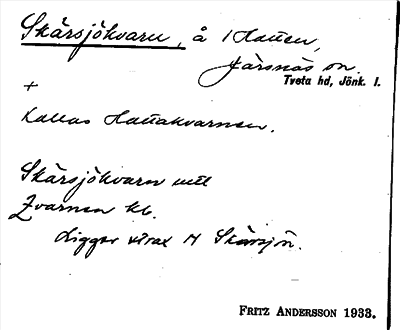 Skärsjökvarn, å 1 Hatten,
Järsnäs sn.
Tveta hd, Jönk. l.
+
Kallas Hattakvarnen.
Skärsjökvarn
Kvarnen kb.
Ligger strax N Skärsjön.
FRITZ ANDERSSON 1933.